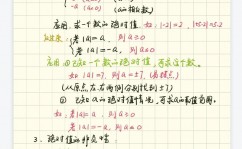 -a (a<0) (a的相反数)
应用: 求一个数的绝对值 如: |-2|=2, |+2.5|=2.5
若|a|=a, 则a≥0
若|a|=-a, 则a≤0
应用 ① 已知a个数的绝对值, 可求这个数。
如: |a|=7, 则a=±7 (易错点)
(从原点左右两侧分别找到±7)
② 已知a的绝对值情况, 可求a的取值范围。
如: 若|a|=a, 则a≥0
若|a|=-a, 则a≤0
3. 绝对值的非负性